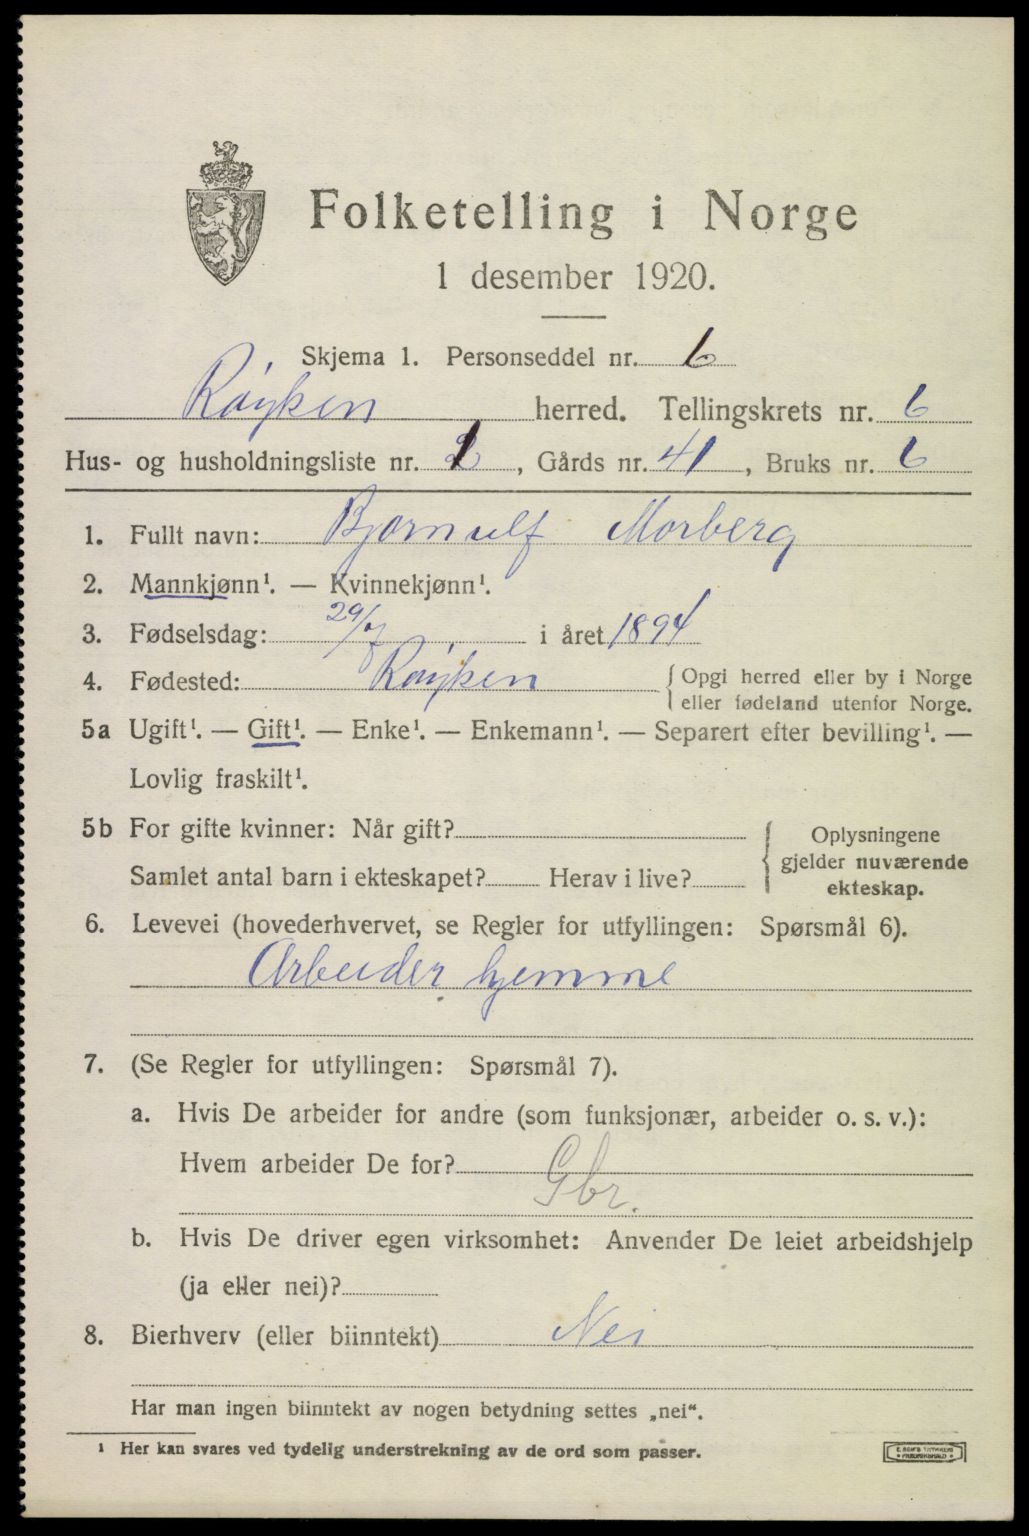 Folketelling i Norge
1 desember 1920.
Skjema 1. Personseddel nr. 6
Røyken herred. Tellingskrets nr. 6
Hus- og husholdningsliste nr. 1, Gårds nr. 41, Bruks nr. 6
1. Fullt navn: Bjørnulf Morberg
2. Mannkjønn¹. — Kvinnekjønn¹.
3. Fødselsdag: 29/7 i året 1894
4. Fødested: Røyken {Opgi herred eller by i Norge
eller fødeland utenfor Norge.
5a Ugift¹. — Gift¹. — Enke¹. — Enkemann¹. — Separert efter bevilling¹. —
Lovlig fraskilt¹.
5b For gifte kvinner: Når gift?
Samlet antal barn i ekteskapet? Herav i live?
Oplysningene
gjelder nuværende
ekteskap.
6. Levevei (hovederhvervet, se Regler for utfyllingen: Spørsmål 6).
Arbeider hjemme
7. (Se Regler for utfyllingen: Spørsmål 7).
a. Hvis De arbeider for andre (som funksjonær, arbeider o. s. v.):
Hvem arbeider De for? Gbr.
b. Hvis De driver egen virksomhet: Anvender De leiet arbeidshjelp
(ja eller nei)?
8. Bierhverv (eller biinntekt) Nei
Har man ingen biinntekt av nogen betydning settes „nei“.
¹ Her kan svares ved tydelig understrekning av de ord som passer.